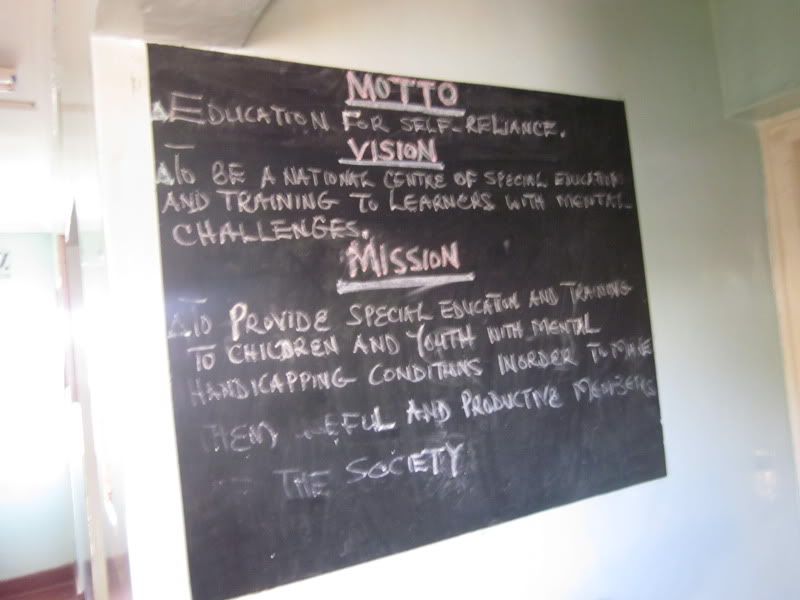 MOTTO
EDUCATION FOR SELF-RELIANCE.
VISION
TO BE A NATIONAL CENTRE OF SPECIAL EDUCATION
AND TRAINING TO LEARNERS WITH MENTAL
CHALLENGES.
MISSION
TO PROVIDE SPECIAL EDUCATION AND TRAINING
TO CHILDREN AND YOUTH WITH MENTAL
HANDICAPPING CONDITIONS INORDER TO MAKE
THEM AND PRODUCTIVE MEMBERS
THE SOCIETY